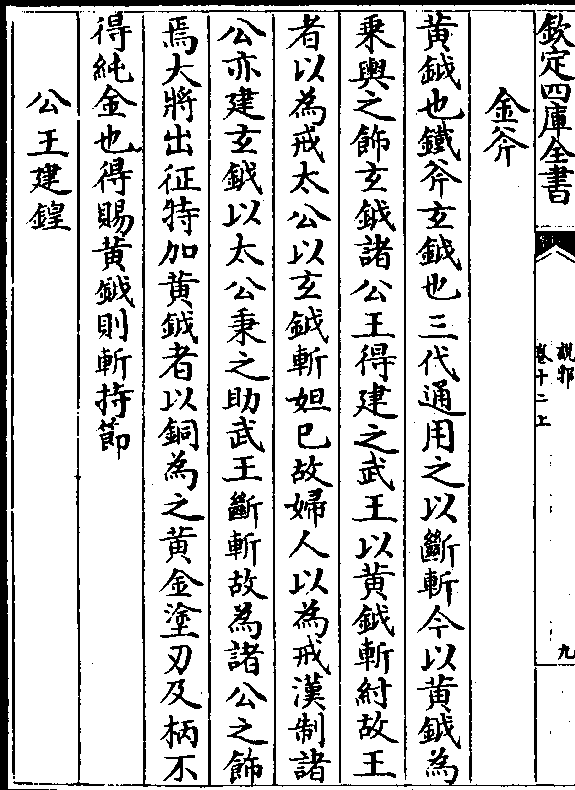 欽定四庫全書
說郛
卷十二上
九
金斧
黃鉞也鐵斧玄鉞也三代通用之以斷斬今以黃鉞為
乘輿之飾玄鉞諸公王得建之武王以黃鉞斬紂故王
者以為戒太公以玄鉞斬妲己故婦人以為戒漢制諸
公亦建玄鉞以太公秉之助武王斷斬故為諸公之飾
焉大將出征特加黃鉞者以銅為之黃金塗刃及柄不
得純金也得賜黃鉞則斬持節
公王建鍠